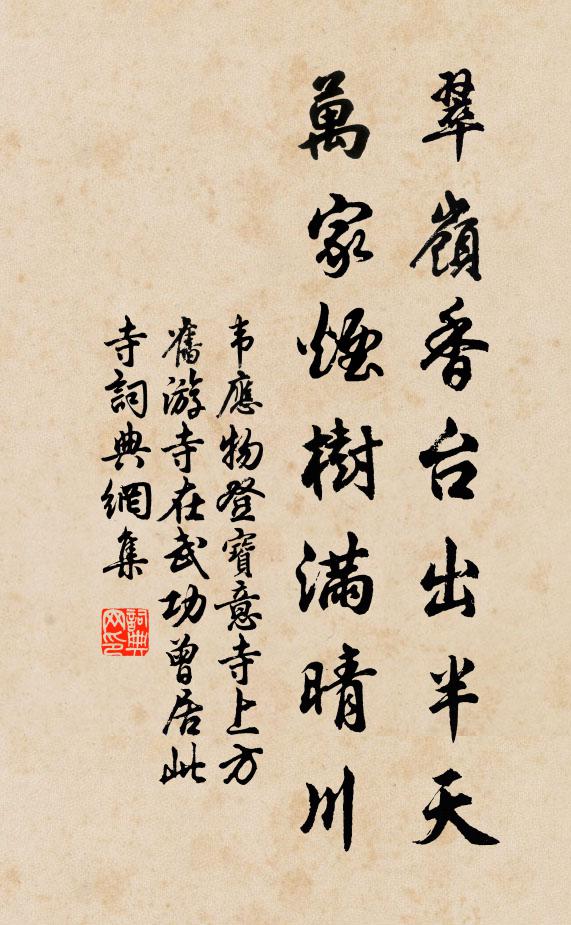 翠嶺香台出半天
萬家煙樹滿晴川
韦應物登寶意寺上方
舊游寺在武功曾居此
寺詞典網集
詞典网印